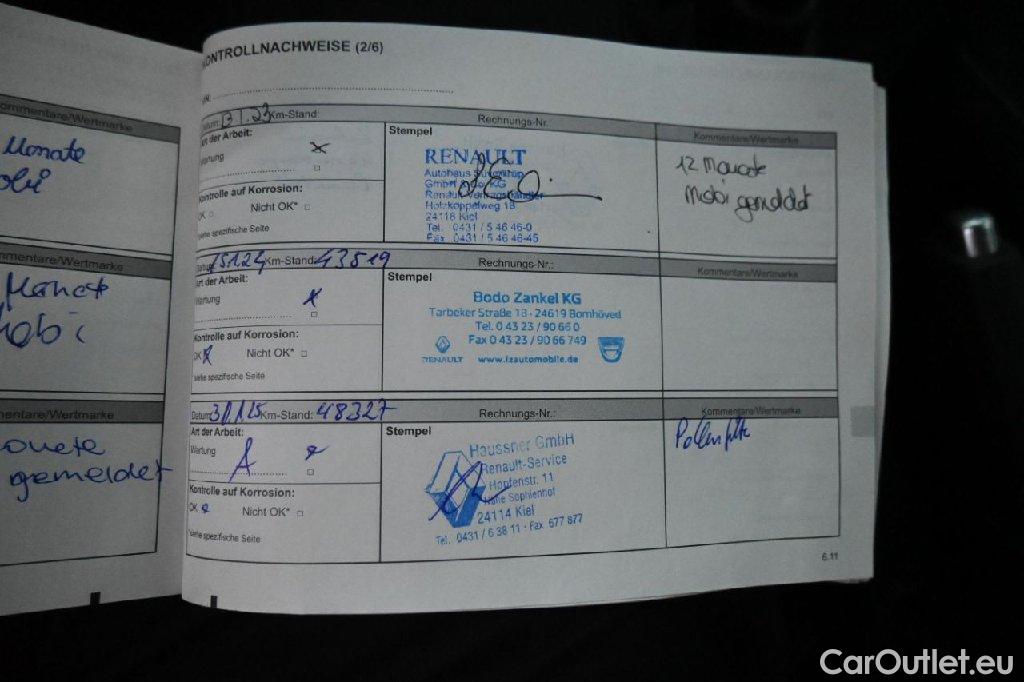 ommentare/Wertmarke
Monate
obi
mentare/Wertmarke
Monate
Mobi
mentare/Wertmarke
gemeldet
KONTROLLNACHWEISE (2/6)
Km-Stand:
Rechnungs-Nr.
Kommentare/Wertmarke
Art der Arbeit:
Wartung
Stempel
RENAULT
GmbH & Co KG
Renault Vertragshändler
Holzkoppelweg 18
24118 Kiel
Tel. 0431 / 5 46 46-0
Fax 0431 / 5 46 46-45
12 Monate
Mobi gemeldet
Kontrolle auf Korrosion:
OK
Nicht OK*
*siehe spezifische Seite
Km-Stand: 43519
Rechnungs-Nr.:
Kommentare/Wertmarke
Art der Arbeit:
Wartung
Stempel
Bodo Zankel KG
Tarbeker Straße 13 · 24619 Bornhöved
Tel. 0 43 23 / 90 66 0
Fax 0 43 23 / 90 66 749
RENAULT www.izautomobile.de
Kontrolle auf Korrosion:
OK
Nicht OK*
*siehe spezifische Seite
Datum: Km-Stand: 48327
Rechnungs-Nr.:
Kommentare/Wertmarke
Art der Arbeit:
Wartung A
Stempel
Haussner GmbH
Renault-Service
Hopfenstr. 11
Nähe Sophienhof
24114 Kiel
Tel. 0431 / 6 38 11 · Fax 677 877
Pollenfilter
Kontrolle auf Korrosion:
OK
Nicht OK*
*siehe spezifische Seite
6.11
CarOutlet.eu